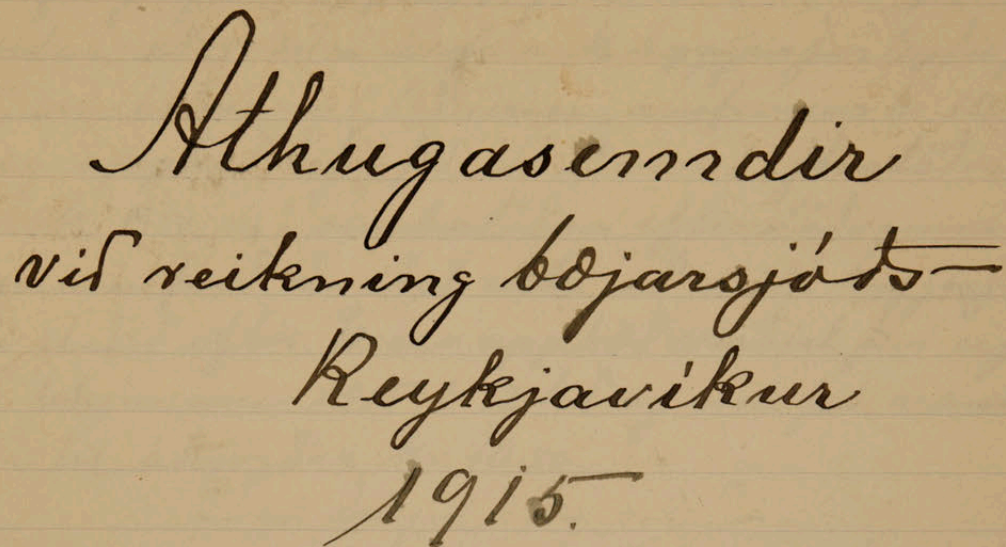 Athugasemdir
við reikning bæjarsjóðs
Reykjavíkur
1915.